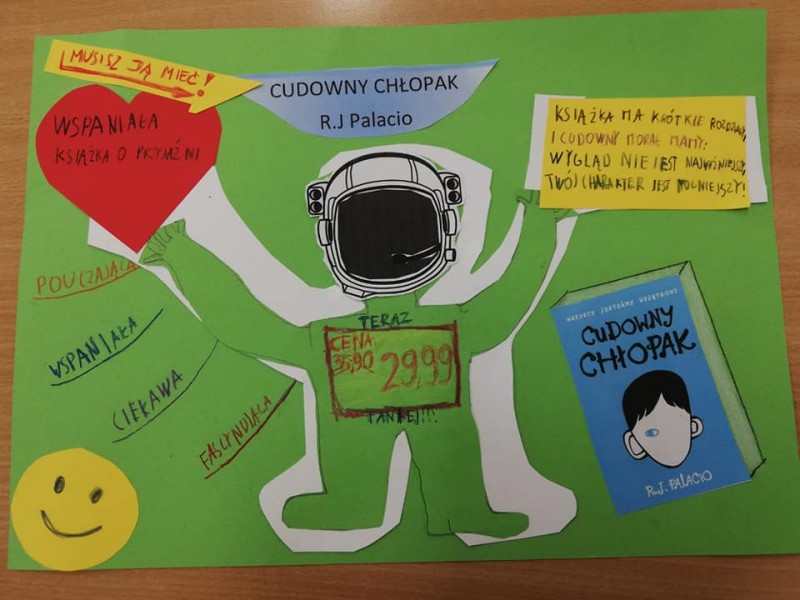 MUSISZ JĄ MIEĆ!
CUDOWNY CHŁOPAK
R.J Palacio
WSPANIAŁA
KSIĄŻKA O PRZYJAŹNI
KSIĄŻKA MA KRÓTKIE ROZDZIAŁY,
I CUDOWNY MORAŁ MAMY:
WYGLĄD NIE JEST NAJWAŻNIEJSZY,
TWÓJ CHARAKTER JEST
POUCZAJĄCA
WSPANIAŁA
CIEKAWA
FASCYNUJĄCA
TERAZ
CENA
35,90
29,99
TANIEJ!!!
WSZYSCY JESTEŚMY WYJĄTKOWI
CUDOWNY
CHŁOPAK
R.J. PALACIO